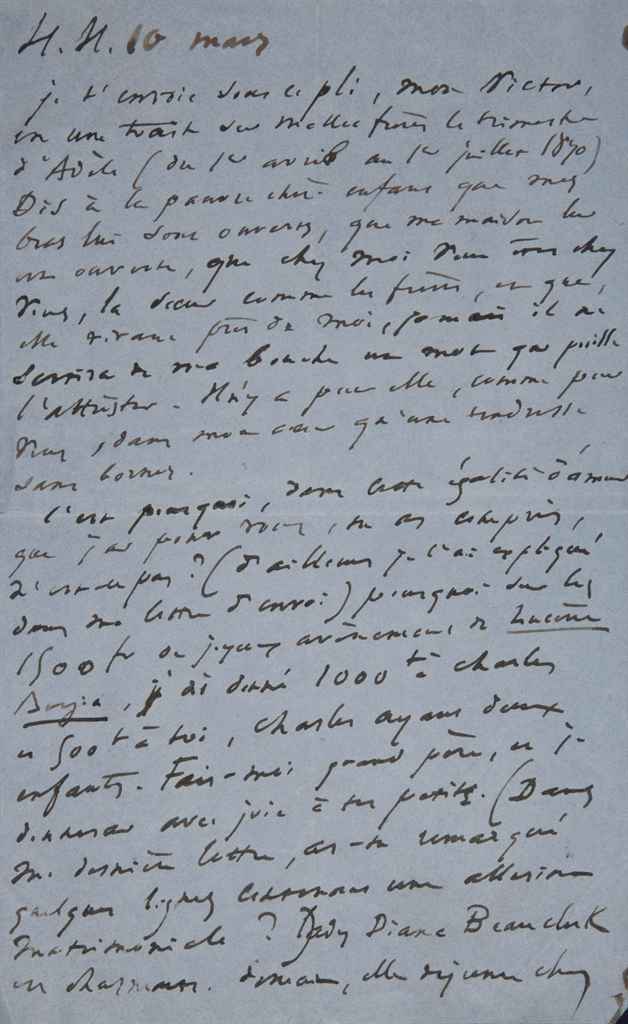 H. H. 10 mars
je t'envoie sous ce pli, mon Victor,
en une traite sur Mallet frères le trimestre
d'Adèle (du 1er avril au 1er juillet 1870)
Dis à la pauvre chère enfant que mes
bras lui sont ouverts, que ma maison lui
est ouverte, que chez moi vous êtes chez
vous, la sœur comme les frères, et que,
elle vivant près de moi, jamais il ne
sortira de ma bouche un mot qui puisse
l'attrister. Il n'y a pour elle, comme pour
vous, dans mon cœur qu'une tendresse
sans bornes.
C'est pourquoi, dans cette égalité d'amour
que j'ai pour vous, tu as compris,
n'est-ce pas ? (d'ailleurs je l'ai expliqué
dans ma lettre d'envoi) pourquoi sur les
1500 fr de joyeux avènement de Lucrèce
Borgia, j'ai donné 1000 f à Charles
et 500 f à toi, Charles ayant deux
enfants. Fais-moi grand père, et je
donnerai avec joie à tes petits. (Dans
ma dernière lettre, as-tu remarqué
quelques lignes contenant une allusion
matrimoniale ? Lady Diane Beauclerk
est charmante. demain, elle déjeune chez